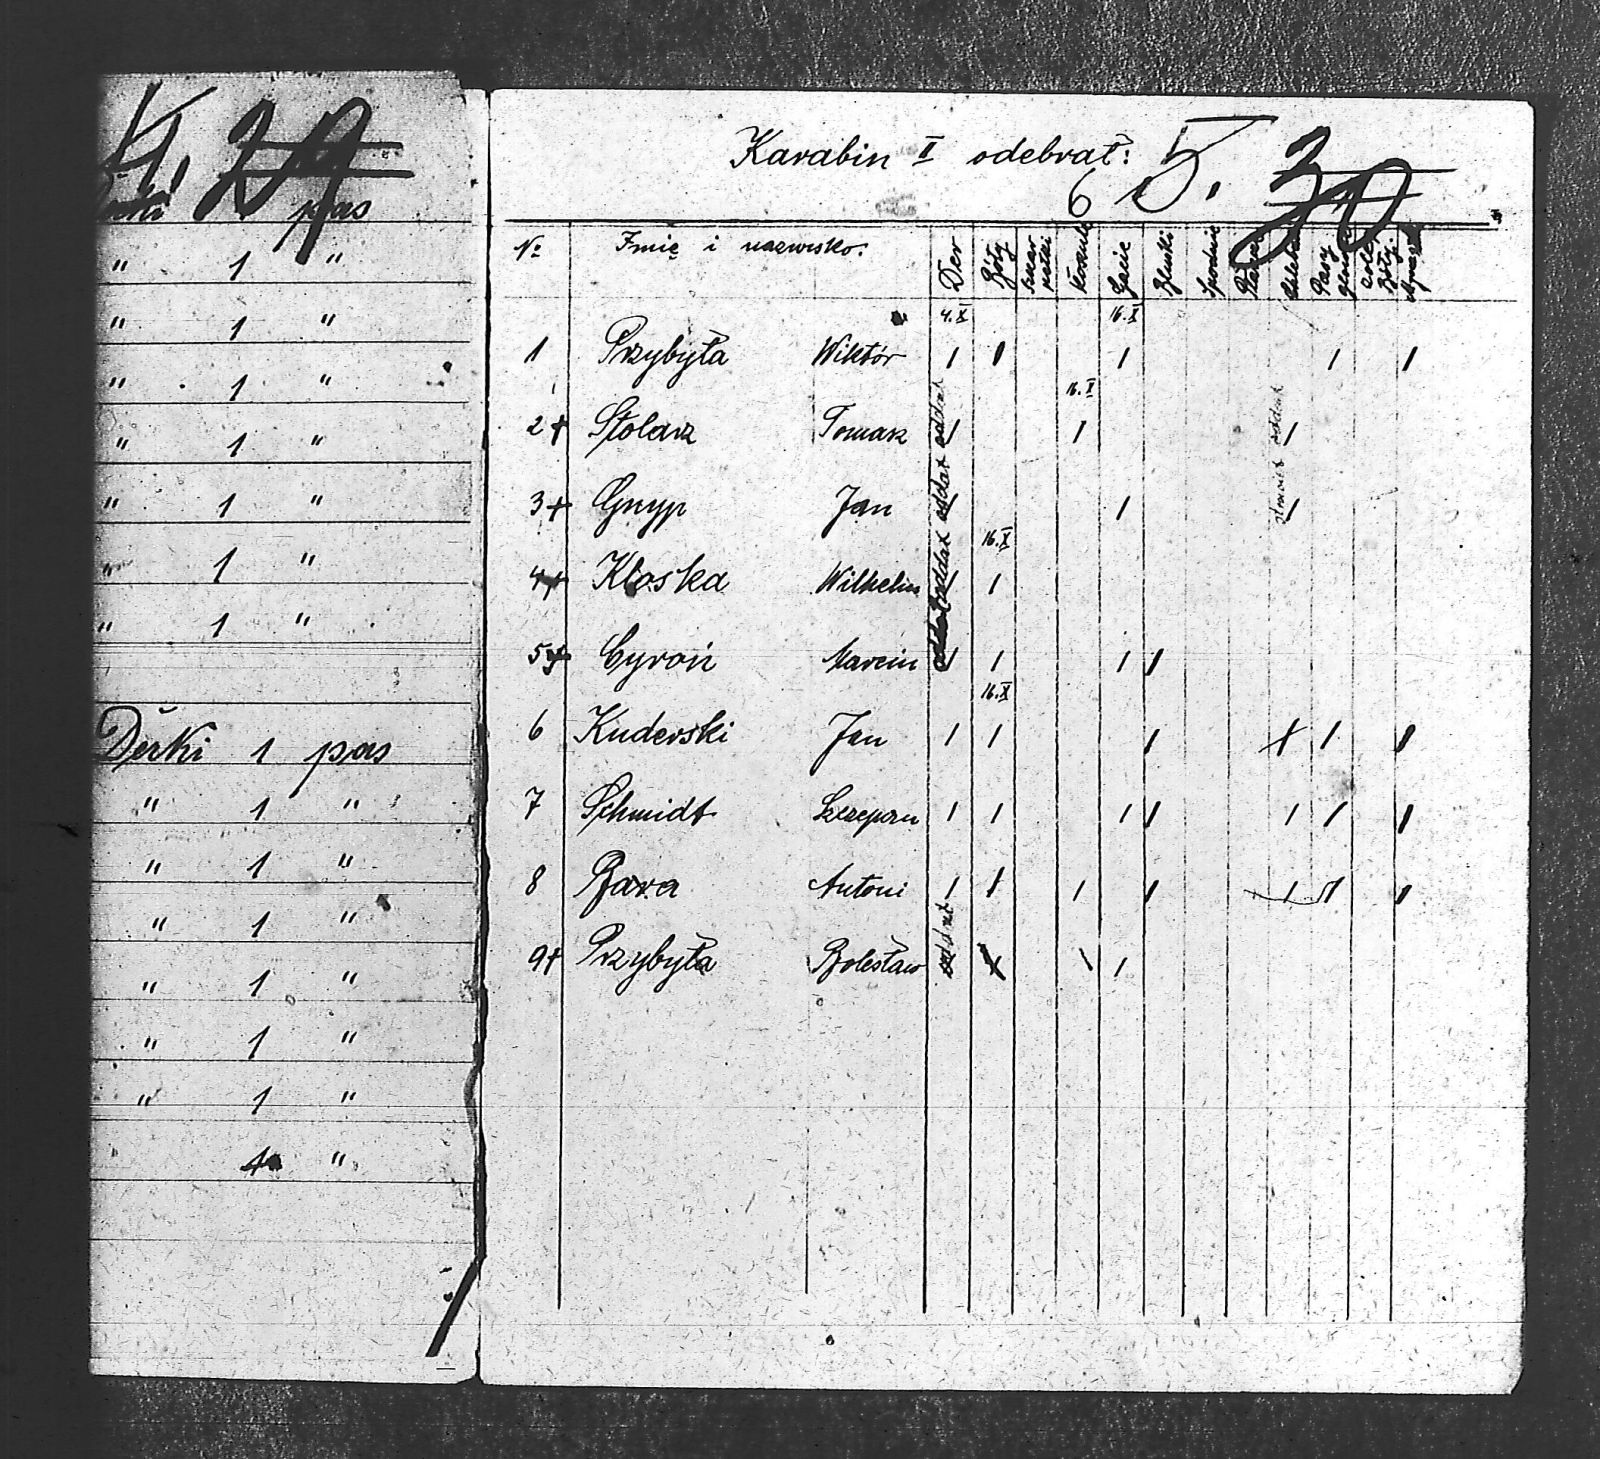 4. 27
pas
" 1 "
" 1 "
" 1 "
" 1 "
" 1 "
" 1 "
" 1 "
Derki 1 pas
" 1 "
" 1 "
" 1 "
" 1 "
" 1 "
" 1 "
"
Karabin II odebrał: 5. 30
6
№ Imię i nazwisko: Der Bóty Koszule Gacie Bluski Spodnie Pasy
4.X 16.X
1 Przybyła Wiktór 1 1 1 1 1
16.X
2+ Stolarz Tomasz oddał 1 1 1 oddał
3+ Gnyp Jan oddał 1 1 1
16.X
4+ Kloska Wilhelm oddał 1 1
5+ Cyroń Marcin 1 1 1 1
16.X
6 Kuderski Jan 1 1 1 + 1 1
7 Schmidt Szczepan 1 1 1 1 1 1 1
8 Bara Antoni 1 1 1 1 1 1 1
9+ Przybyła Bolesław oddał + 1 1